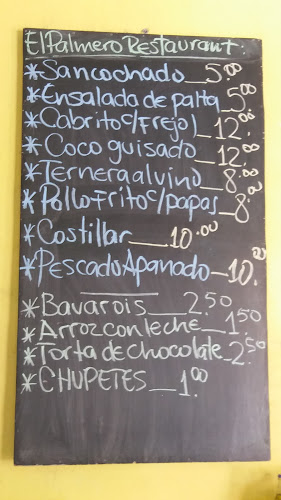 El Palmero Restaurant.
*Sancochado_5.00
*Ensalada de palta_5.00
*Cabrito c/Frejol_12.00
*Coco guisado_12.00
*Ternera al vino_8.00
*Pollo Frito c/papas_8.00
*Costillar__10.00
*Pescado Apanado_10.00
*Bavarois__2.50
*Arroz con leche_1.50
*Torta de chocolate_2.50
*CHUPETES__1.00